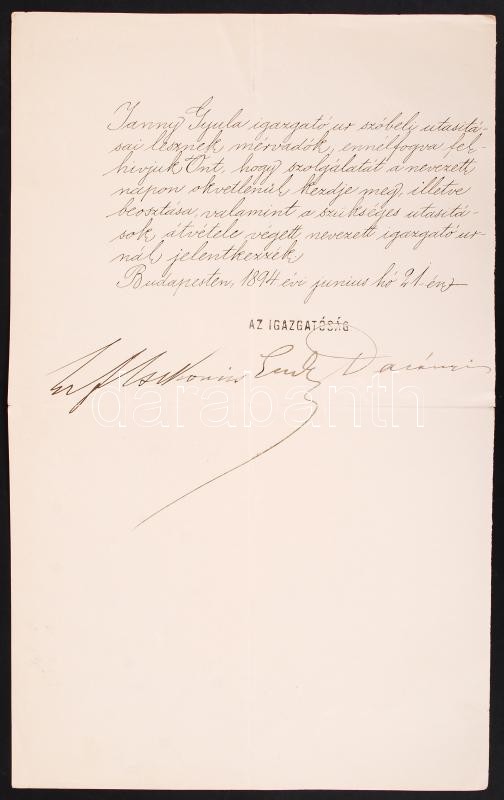 Janny Gyula igazgató ur szóbeli utasitá-
sai lesznek mérvadók, ennélfogva fel-
hivjuk Önt, hogy szolgálatát a nevezett
napon okvetlenül kezdje meg, illetve
beosztása, valamint a szükséges utasitá-
sok átvétele végett nevezett igazgató ur-
nál jelentkezzék.
Budapesten, 1894 évi junius hó 21-én
AZ IGAZGATÓSÁG
Darányi
darabanth